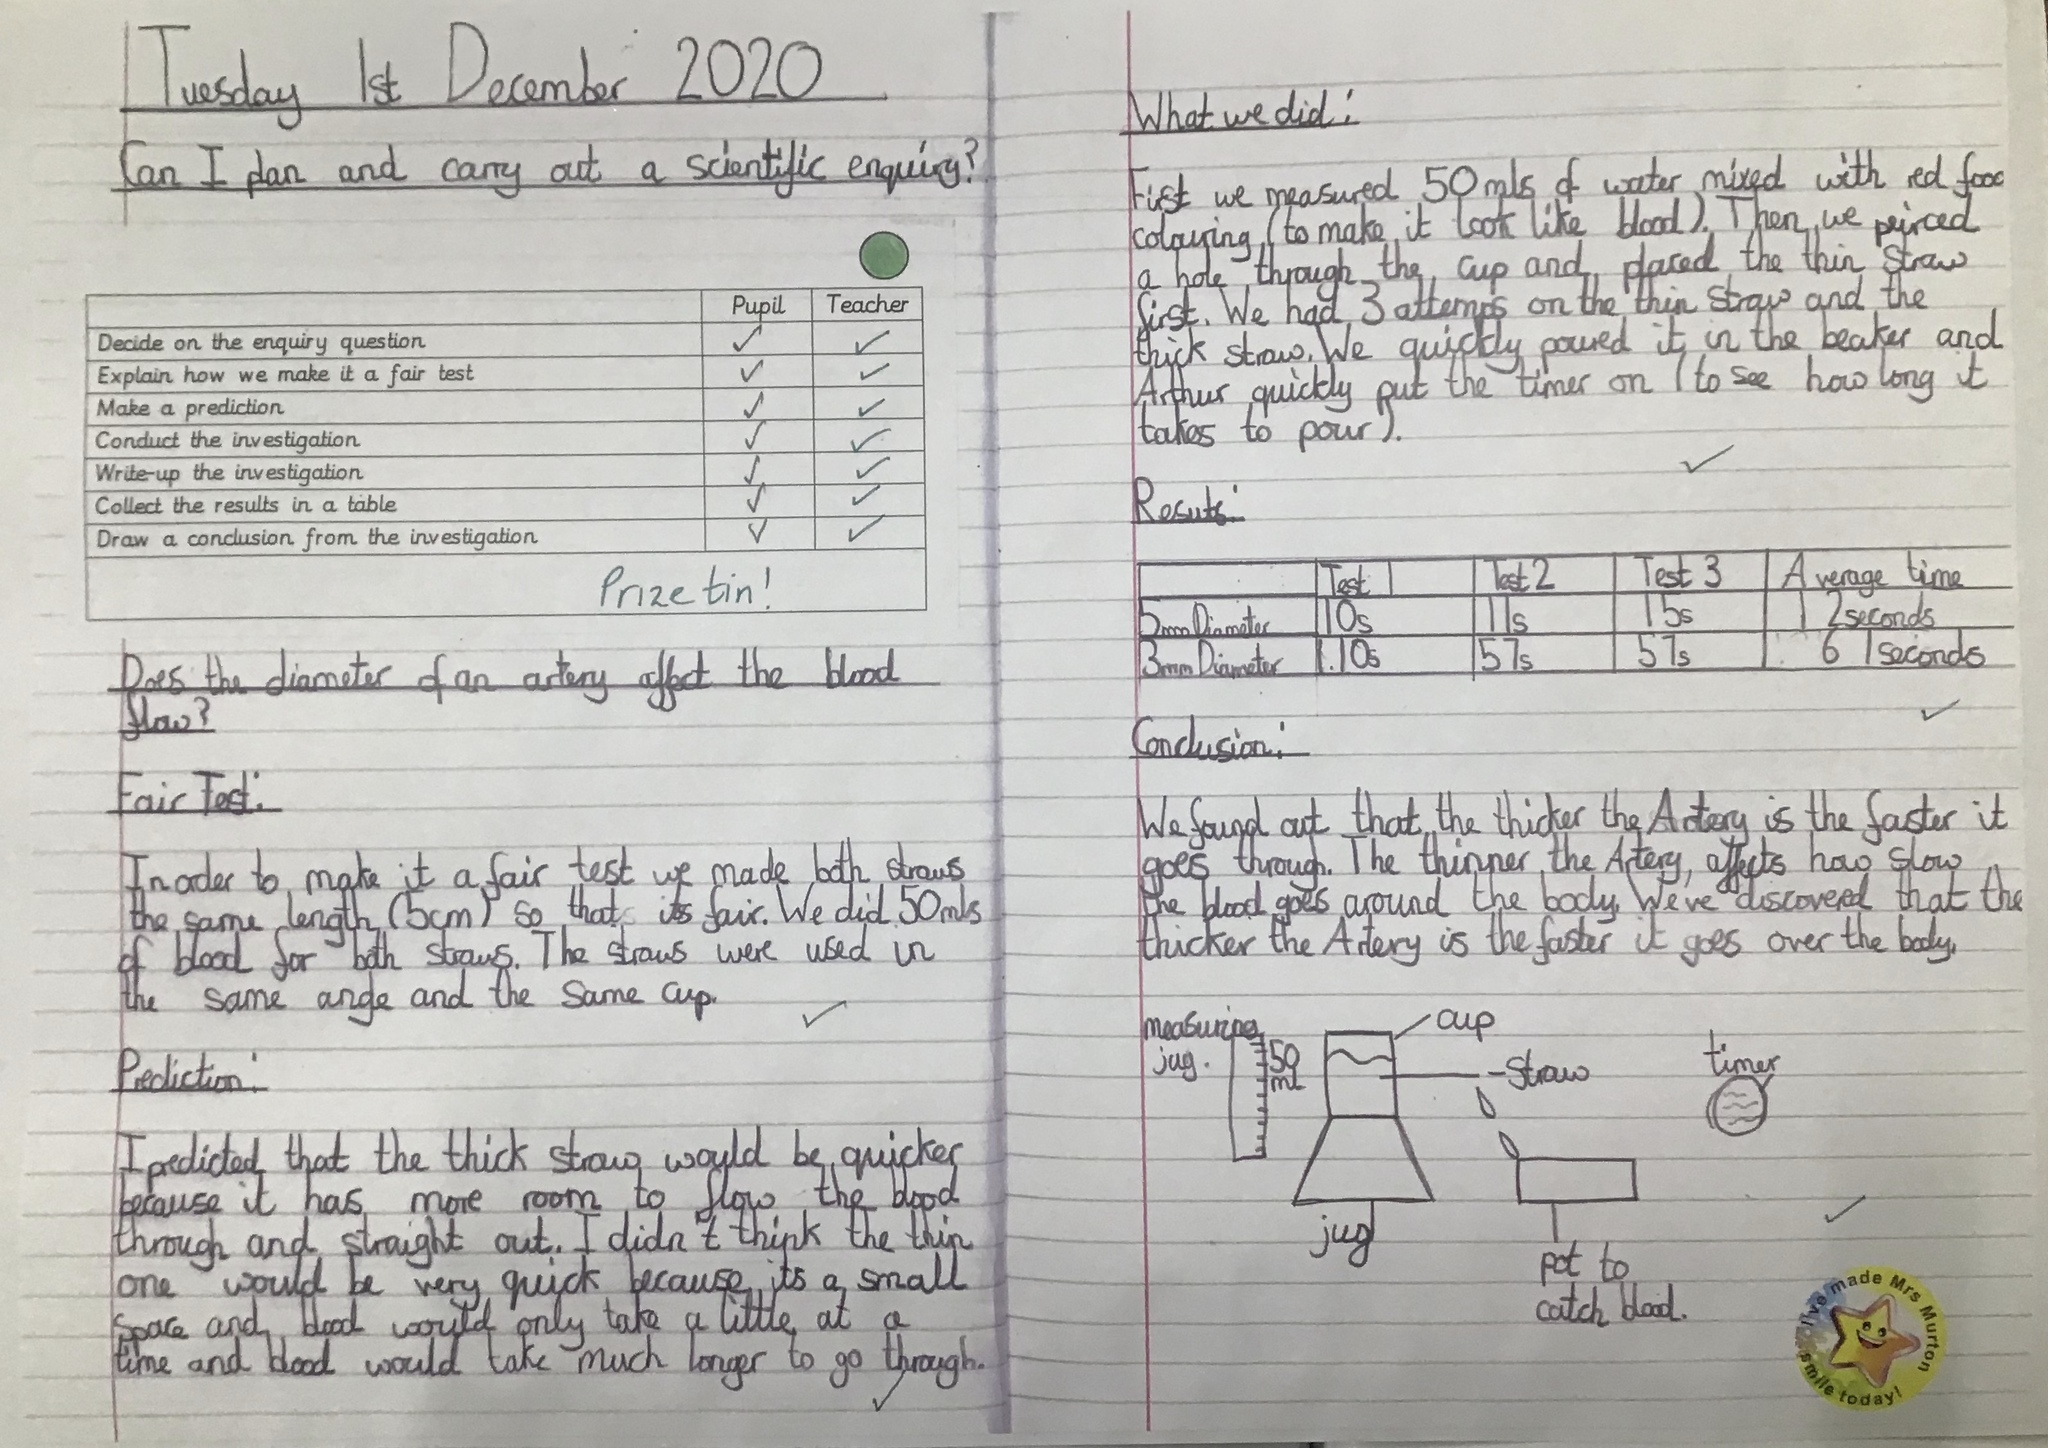 Tuesday 1st December 2020
Can I plan and carry out a scientific enquiry?
Pupil Teacher
Decide on the enquiry question ✓ ✓
Explain how we make it a fair test ✓ ✓
Make a prediction ✓ ✓
Conduct the investigation ✓ ✓
Write-up the investigation ✓ ✓
Collect the results in a table ✓ ✓
Draw a conclusion from the investigation ✓ ✓
Prize tin!
Does the diameter of an artery affect the blood
flow?
Fair Test:
In order to make it a fair test we made both straws
the same length (5cm) so that its fair. We did 50mls
of blood for both straws. The straws were used in
the same angle and the same cup.
Prediction:
I predicted that the thick straw would be quicker
because it has more room to flow the blood
through and straight out. I didn't think the thin
one would be very quick because its a small
space and blood would only take a little at a
time and blood would take much longer to go through.
What we did:
First we measured 50mls of water mixed with red food
colouring (to make it look like blood). Then we peirced
a hole through the cup and placed the thin straw
first. We had 3 attemps on the thin straw and the
thick straw. We quickly poured it in the beaker and
Arthur quickly put the timer on (to see how long it
takes to pour).
Resuts:
Test 1 Test 2 Test 3 Average time
5mm Diameter 10s 11s 15s 12seconds
3mm Diameter 1.10s 57s 57s 61seconds
Conclusion:
We found out that the thicker the Artery is the faster it
goes through. The thinner the Artery, affects how slow
the blood goes around the body. We've discovered that the
thicker the Artery is the faster it goes over the body.
measuring
jug.
50
ml
cup
-straw
timer
jug
pot to
catch blood.
I've made Mrs Murton
smile today!